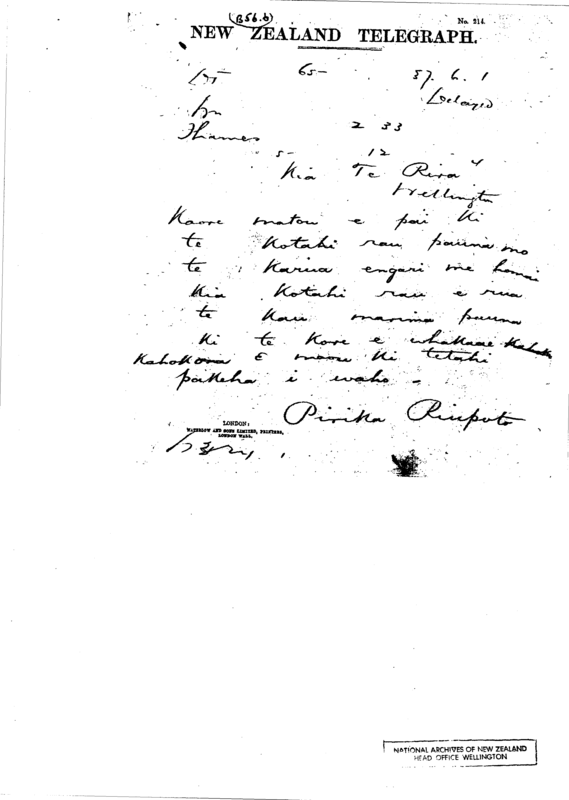 (B56.b)
No. 214.
NEW ZEALAND TELEGRAPH.
65-
87. 6. 1
Delayed
Thames
2 33
5- 12
Kia Te Rira
Wellington
Kaore matou e pai ki
te Kotahi rau pauna mo
te Karua engari me homai
Kia Kotahi rau e rua
te kau marima pauna
Ki te Kore e whakaae
Kahokona E maou ki tetahi
pakeha i waho -
Pirika
LONDON:
WATERLOW AND SONS LIMITED, PRINTERS,
LONDON WALL.
NATIONAL ARCHIVES OF NEW ZEALAND
HEAD OFFICE WELLINGTON